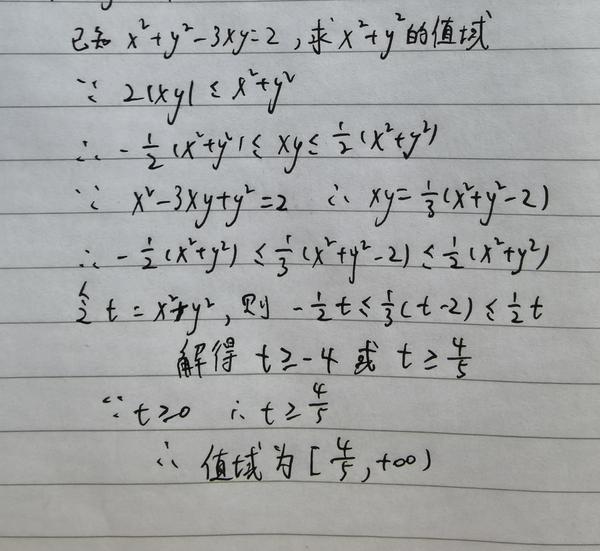 已知 x²+y²-3xy=2，求x²+y²的值域
∵ 2|xy| ≤ x²+y²
∴ -1/2(x²+y²) ≤ xy ≤ 1/2(x²+y²)
∵ x²-3xy+y²=2 ∴ xy=1/3(x²+y²-2)
∴ -1/2(x²+y²) ≤ 1/3(x²+y²-2) ≤ 1/2(x²+y²)
令 t=x²+y²，则 -1/2t ≤ 1/3(t-2) ≤ 1/2t
解得 t≥-4 或 t≥4/5
∵ t≥0 ∴ t≥4/5
∴ 值域为[4/5,+∞)